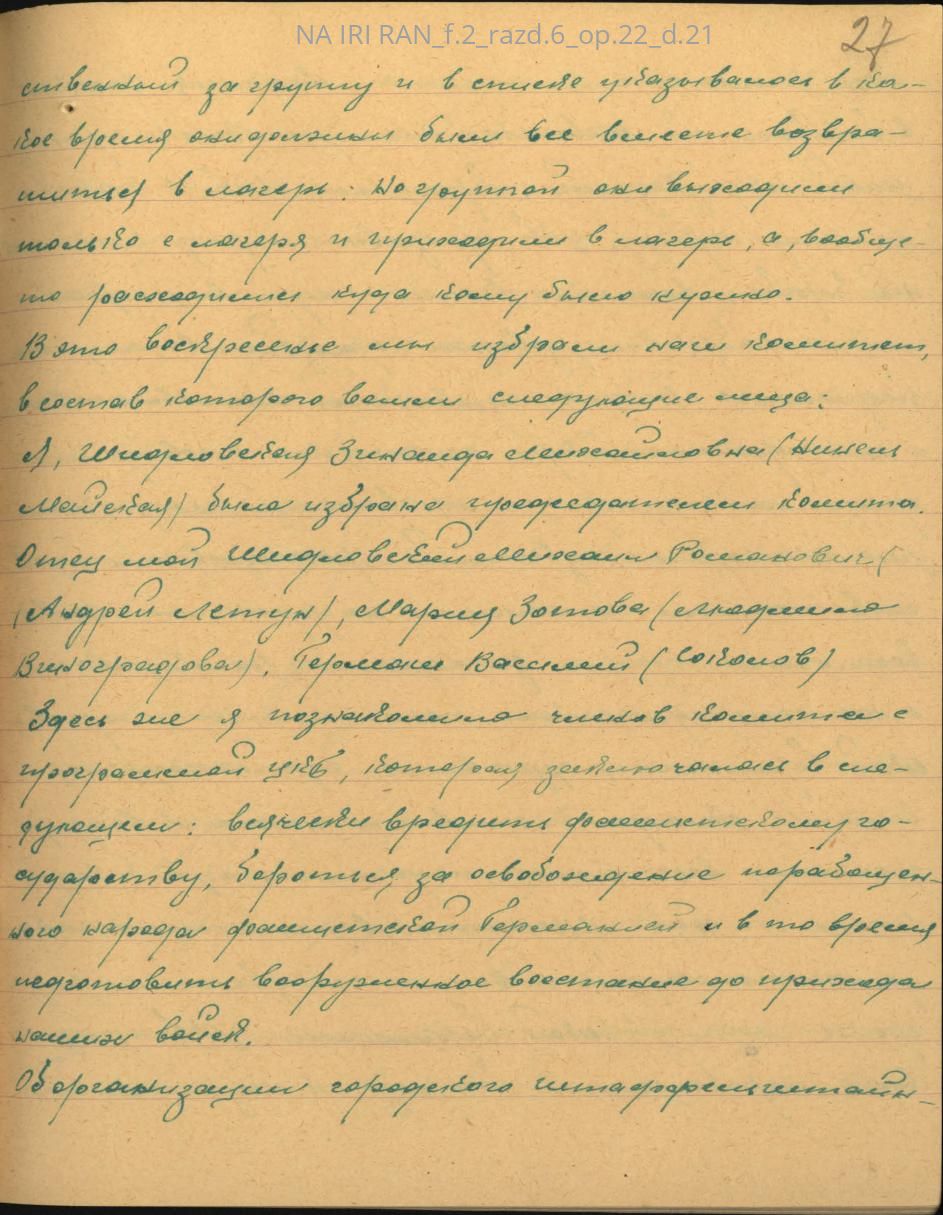 NA IRI RAN_f.2_razd.6_op.22_d.21
27
ственный за группу и в списке указывалось в ка-
кое время они должны были все вместе возвра-
титься в лагерь. Но группой они выходили
только с лагеря и приходили в лагерь, а, вообще-
то расходились куда кому было нужно.
В это воскресенье мы избрали наш комитет,
в состав которого вошли следующие лица:
Я, Шидловская Зинаида Михайловна (Нинель
Майская) была избрана председателем комита.
Отец мой Шидловский Михаил Романович (
(Андрей Летун), Мария Зотова (Людмила
Виноградова), Герман Василий (Соколов)
Здесь же я познакомила членов комитета с
программой ЦКБ, которая заключалась в сле-
дующем: всячески вредить фашистскому го-
сударству, бороться за освобождение порабощен-
ного народа фашистской Германией и в то время
подготовить вооруженное восстание до прихода
наших войск.
Об организации городского штаффельштайн-